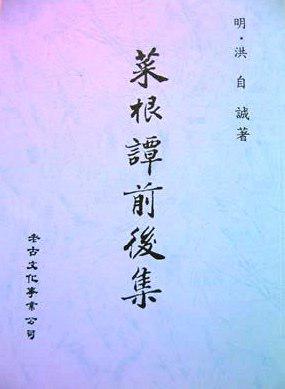 明·洪自誠著
菜根譚前後集
老古文化事業公司